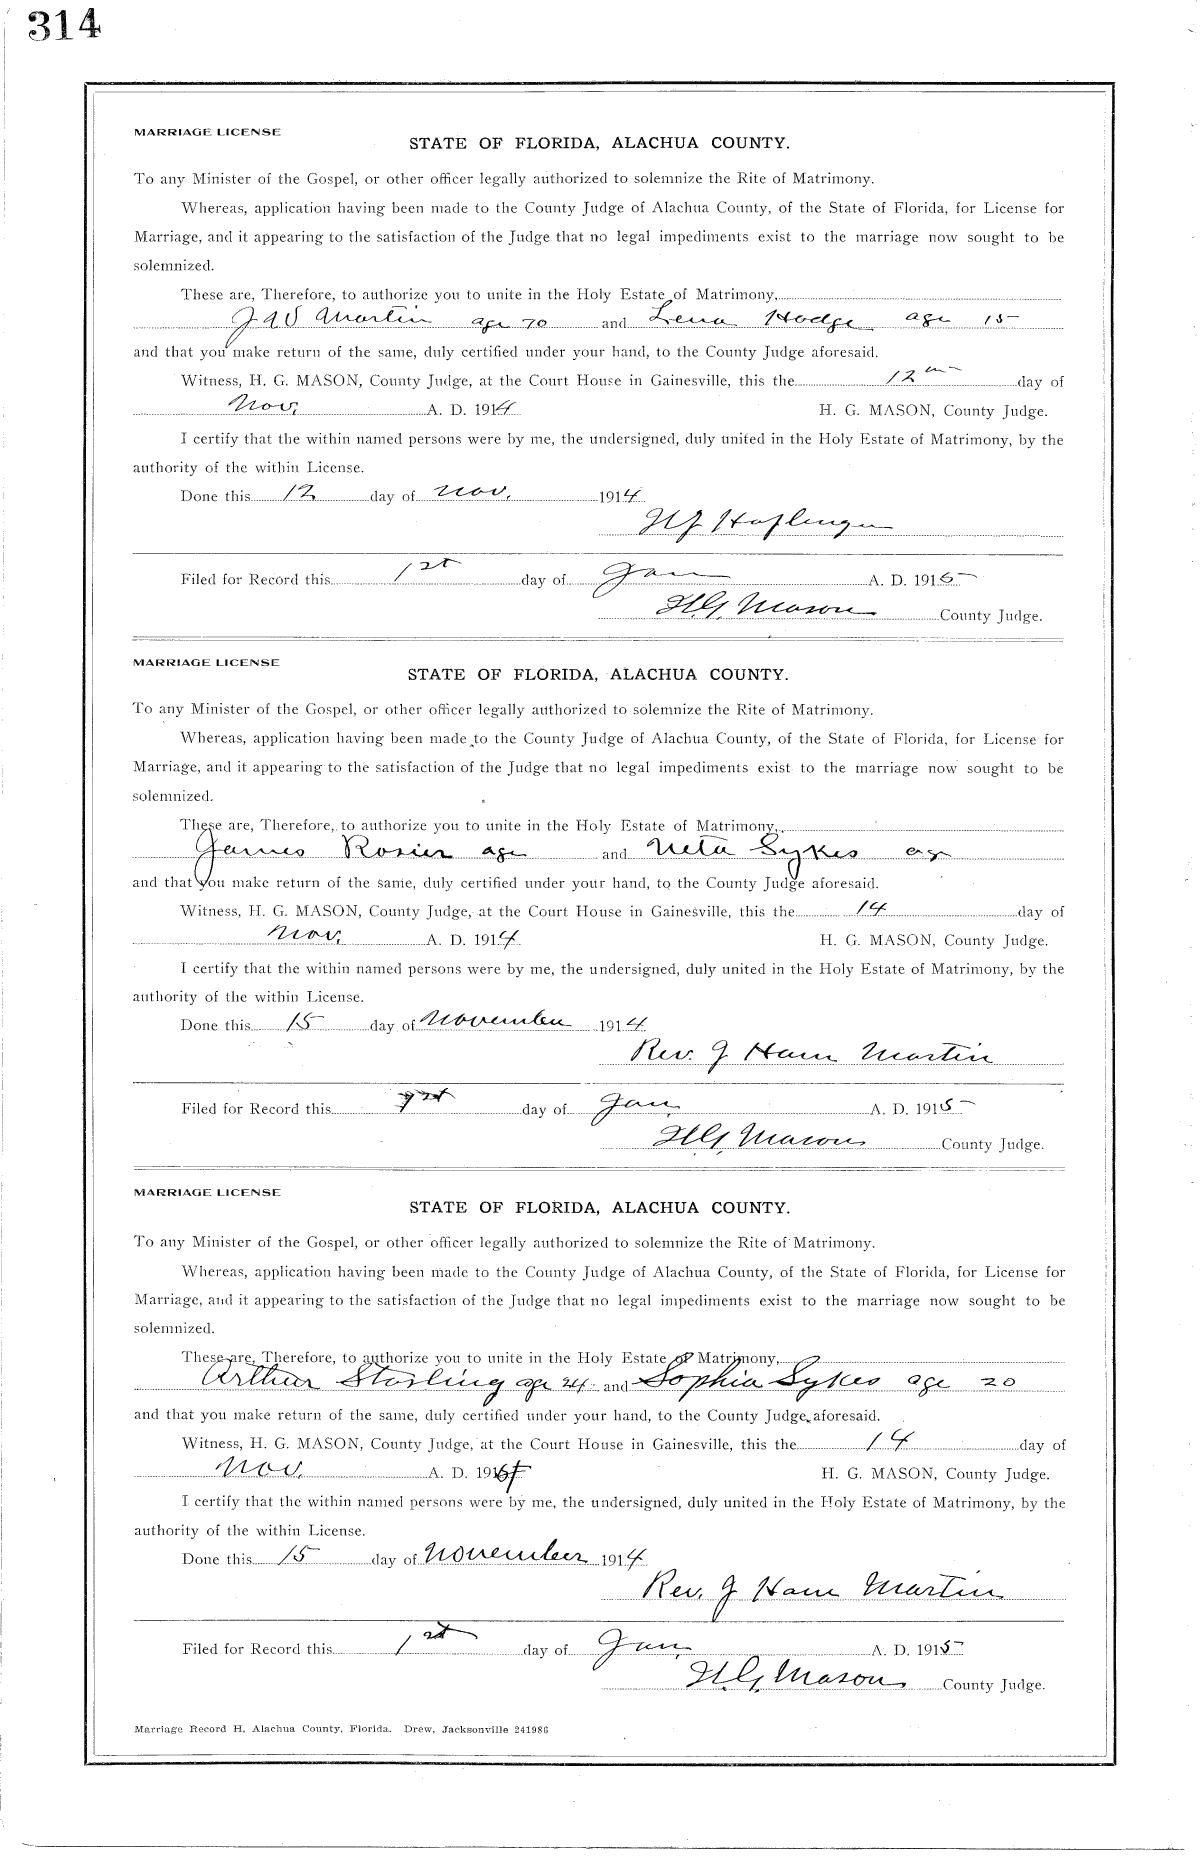 314
MARRIAGE LICENSE
STATE OF FLORIDA, ALACHUA COUNTY.
To any Minister of the Gospel, or other officer legally authorized to solemnize the Rite of Matrimony.
Whereas, application having been made to the County Judge of Alachua County, of the State of Florida, for License for
Marriage, and it appearing to the satisfaction of the Judge that no legal impediments exist to the marriage now sought to be
solemnized.
These are, Therefore, to authorize you to unite in the Holy Estate of Matrimony,
Martin age 70 and Lena Hodge age 15
and that you make return of the same, duly certified under your hand, to the County Judge aforesaid.
Witness, H. G. MASON, County Judge, at the Court House in Gainesville, this the 12 day of
Nov. A. D. 1914 H. G. MASON, County Judge.
I certify that the within named persons were by me, the undersigned, duly united in the Holy Estate of Matrimony, by the
authority of the within License.
Done this 12 day of Nov. 1914
Filed for Record this 1st day of Jan A. D. 1915
H.G. Mason County Judge.
MARRIAGE LICENSE
STATE OF FLORIDA, ALACHUA COUNTY.
To any Minister of the Gospel, or other officer legally authorized to solemnize the Rite of Matrimony.
Whereas, application having been made to the County Judge of Alachua County, of the State of Florida, for License for
Marriage, and it appearing to the satisfaction of the Judge that no legal impediments exist to the marriage now sought to be
solemnized.
These are, Therefore, to authorize you to unite in the Holy Estate of Matrimony,
James Rosier age and Neta Sykes age
and that you make return of the same, duly certified under your hand, to the County Judge aforesaid.
Witness, H. G. MASON, County Judge, at the Court House in Gainesville, this the 14 day of
Nov. A. D. 1914 H. G. MASON, County Judge.
I certify that the within named persons were by me, the undersigned, duly united in the Holy Estate of Matrimony, by the
authority of the within License.
Done this 15 day of November 1914
Rev. J Ham Martin
Filed for Record this 1st day of Jan. A. D. 1915
H.G. Mason County Judge.
MARRIAGE LICENSE
STATE OF FLORIDA, ALACHUA COUNTY.
To any Minister of the Gospel, or other officer legally authorized to solemnize the Rite of Matrimony.
Whereas, application having been made to the County Judge of Alachua County, of the State of Florida, for License for
Marriage, and it appearing to the satisfaction of the Judge that no legal impediments exist to the marriage now sought to be
solemnized.
These are, Therefore, to authorize you to unite in the Holy Estate of Matrimony,
Arthur Starling age 24 and Sophia Sykes age 20
and that you make return of the same, duly certified under your hand, to the County Judge aforesaid.
Witness, H. G. MASON, County Judge, at the Court House in Gainesville, this the 14 day of
Nov. A. D. 1914 H. G. MASON, County Judge.
I certify that the within named persons were by me, the undersigned, duly united in the Holy Estate of Matrimony, by the
authority of the within License.
Done this 15 day of November 1914
Rev. J Ham Martin
Filed for Record this 1st day of Jan. A. D. 1915
H.G. Mason County Judge.
Marriage Record H, Alachua County, Florida. Drew, Jacksonville 241986